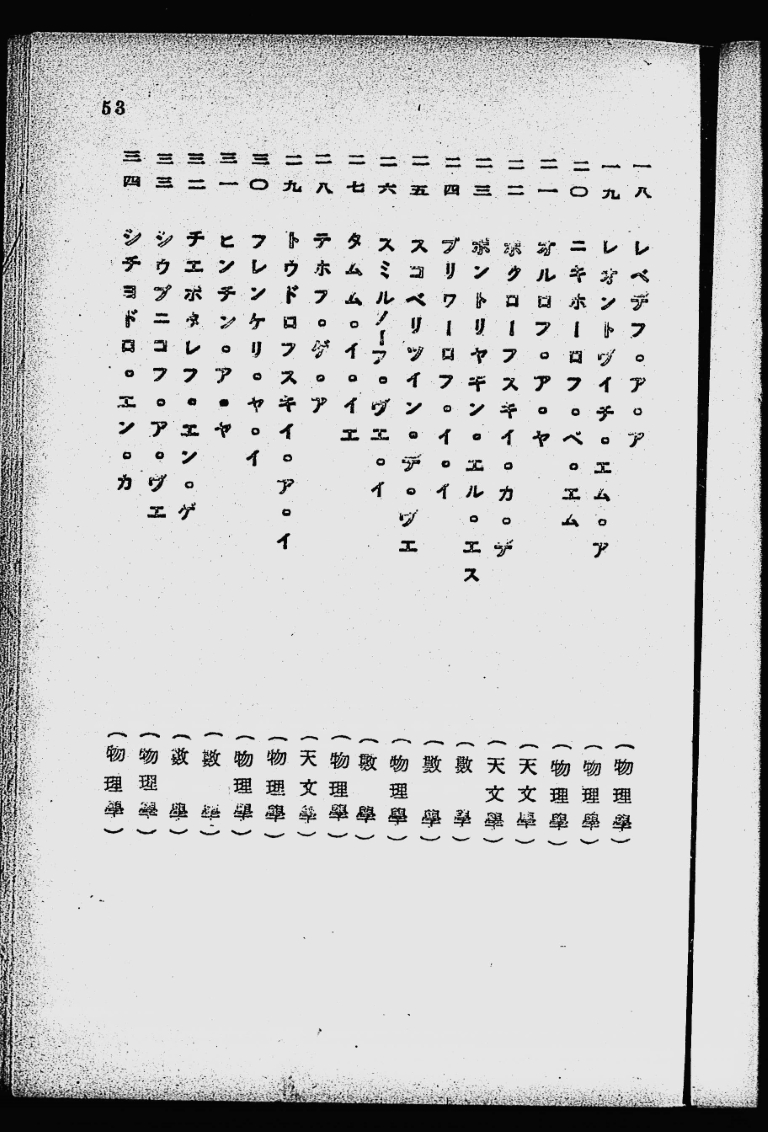 53
一八 レベデフ。ア。ア (物理學)
一九 レオントヴイチ。エム。ア (物理學)
二〇 ニキホーロフ。ベ。エム (物理學)
二一 オルロフ。ア。ヤ (天文學)
二二 ポクローフスキイ。カ。デ (天文學)
二三 ポントリヤギン。エル。エス (數學)
二四 プリワーロフ。イ。イ (數學)
二五 スコベリツイン。デ。ヴエ (物理學)
二六 スミルノーフ。ヴエ。イ (數學)
二七 タムム。イ。イエ (物理學)
二八 テホフ。ゲ。ア (天文學)
二九 トウドロフスキイ。ア。イ (物理學)
三〇 フレンケリ。ヤ。イ (物理學)
三一 ヒンチン。ア。ヤ (數學)
三二 チエボタレフ。エン。ゲ (數學)
三三 シウブニコフ。ア。ヴエ (物理學)
三四 シチヨドロ。エン。カ (物理學)